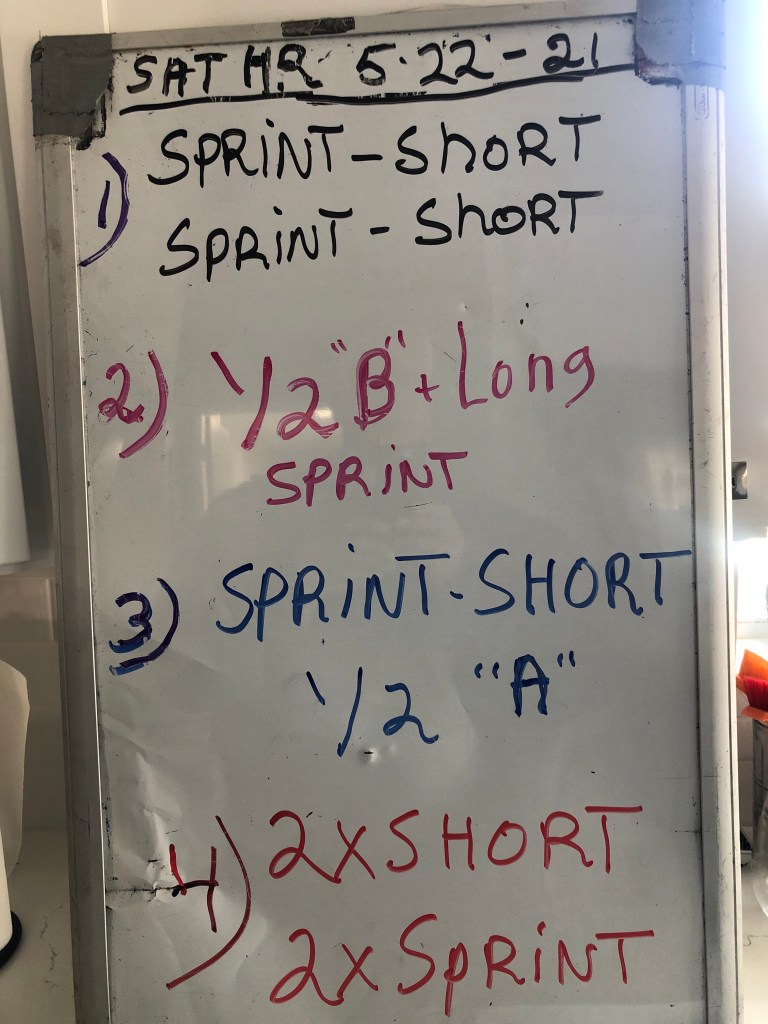 SAT H.R 5.22-21
1) SPRINT-ShORT
SPRINT-ShORT
2) 1/2 "B" + Long
SPRINT
3) SPRINT-SHORT
1/2 "A"
4) 2XSHORT
2XSPRINT